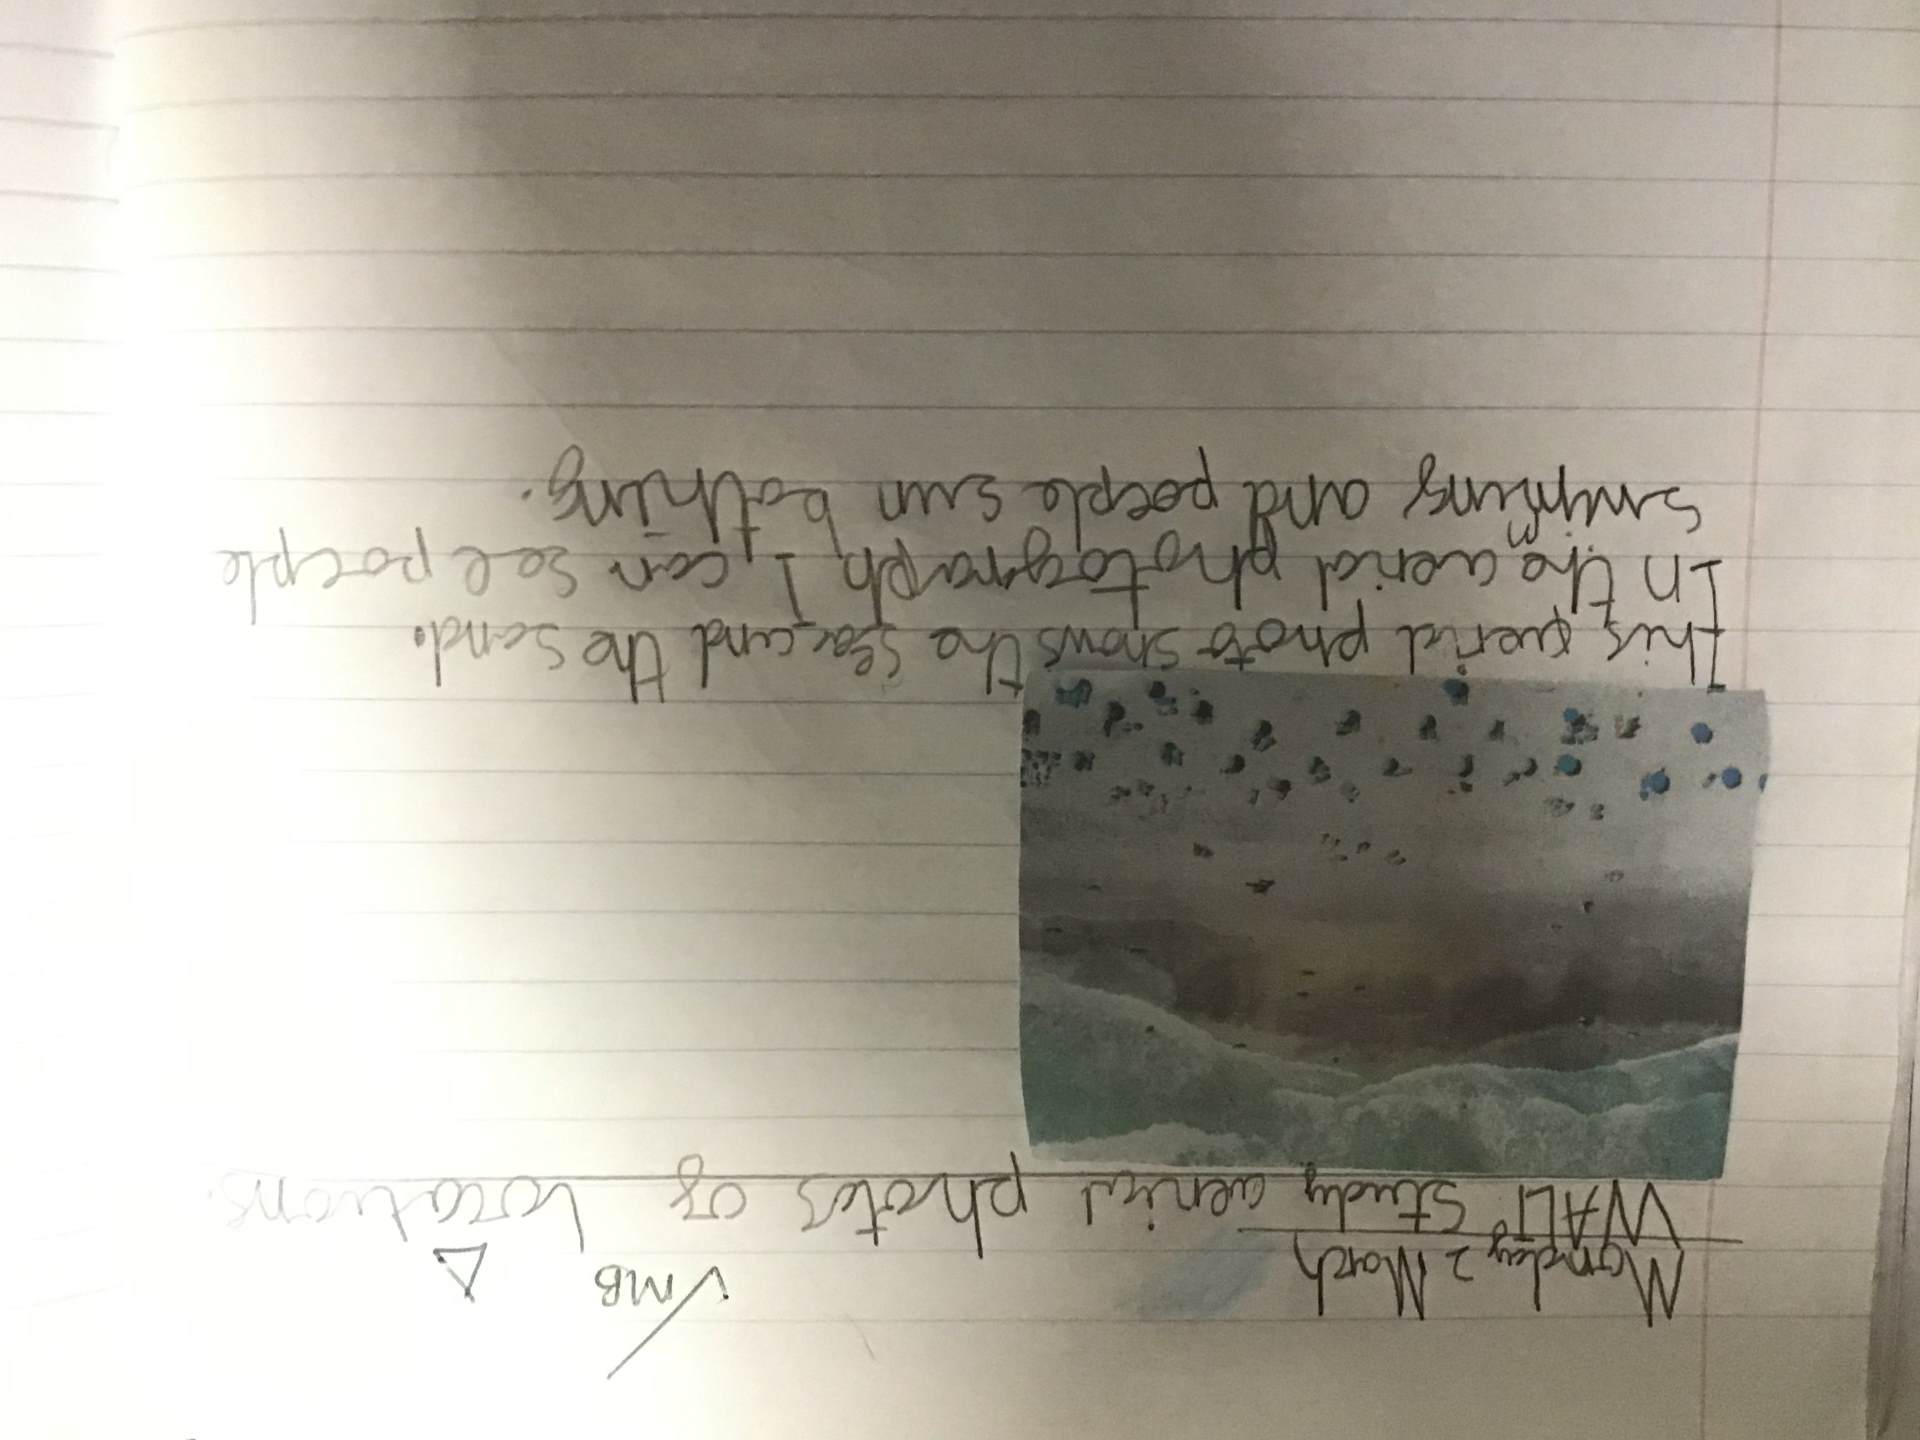 Monday 2 March
✓ MB △
WALT: study aerial photos of locations.
This aerial photo shows the sea and the sand.
In the aerial photograph I can see poeple
swimming and poeple sun bathing.